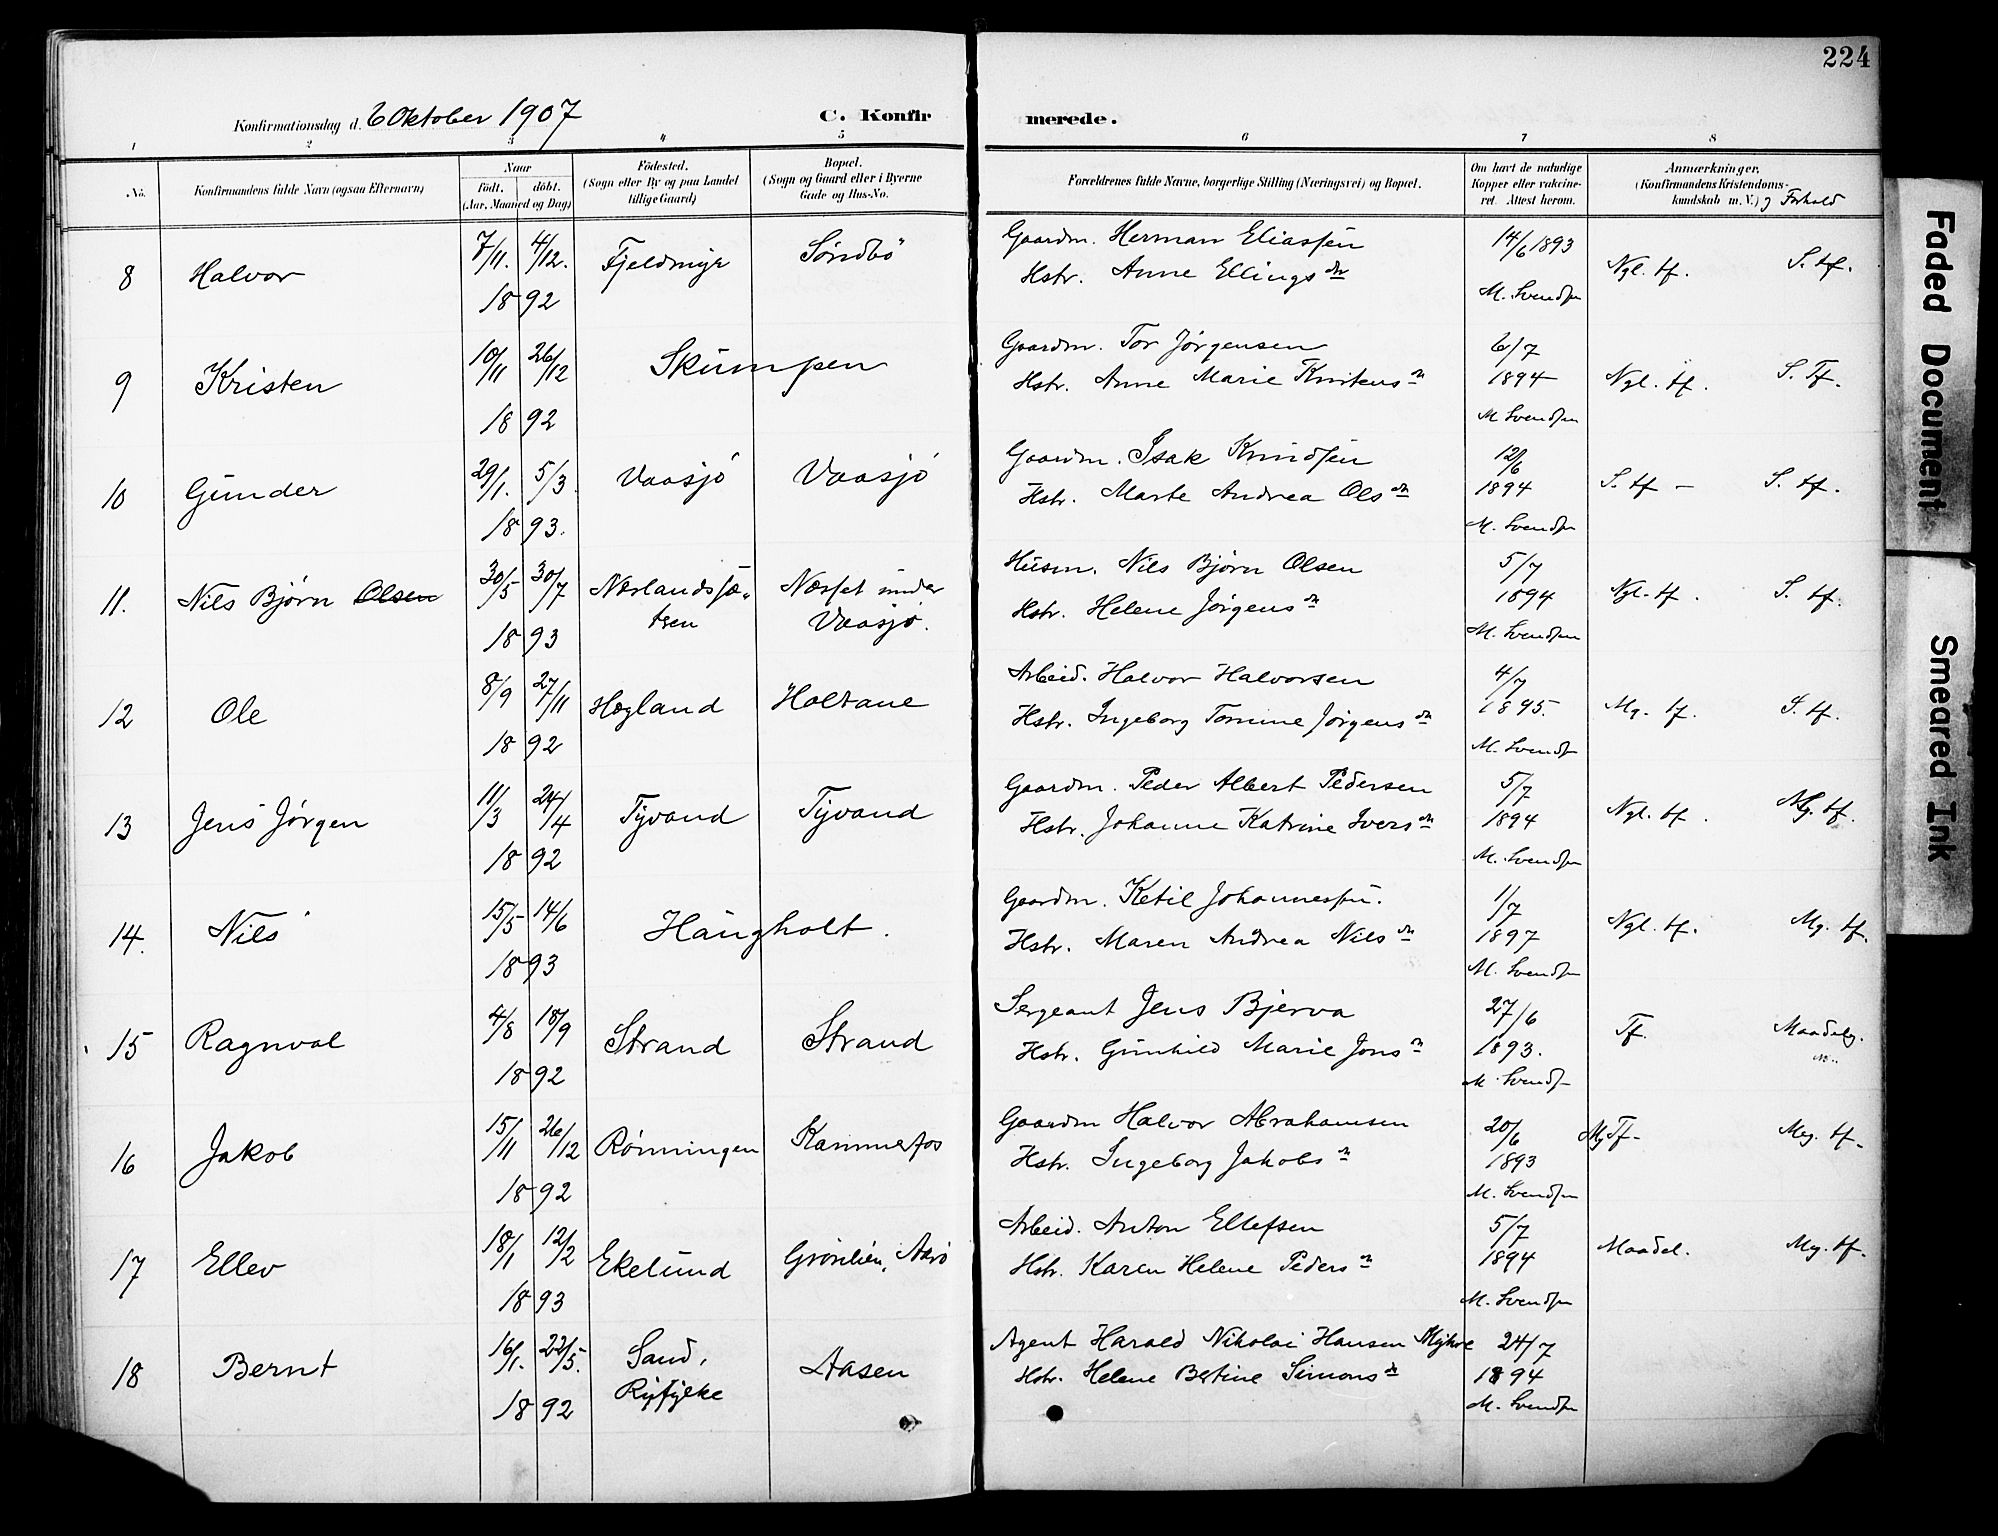 224
Konfirmationsdag d. 6 Oktober 1907
C. Konfirmerede.
1 2 3 4 5 6 7 8
No.
Konfirmandens fulde Navn (ogsaa Efternavn)
Naar
født. døbt.
(Aar, Maaned og Dag)
Födested.
(Sogn eller By og paa Landet
tillige Gaard)
Bopæl.
(Sogn og Gaard eller i Byerne
Gade og Hus-No.
Forældrenes fulde Navne, borgerlige Stilling (Næringsvei) og Bopæl.
Om havt de naturlige
Kopper eller vakcine-
ret. Attest herom.
Anmærkninger,
(Konfirmandens Kristendoms-
kundskab m. V.) og Forhold
8 Halvor 7/11. 4/12. 1892 Fjeldmyr Søndbö
Gaardm. Herman Eliassen 14/6 1893
Hstr. Anne Ellingsdr M. Svendsen Ngl. tf. S. tf.
9 Kristen 10/11 26/12 1892 Skumpen
Gaardm. Tor Jørgensen 6/7
Hstr. Anne Marie Knutens dr 1894 M Svendsen Ngl. tf. S. Tf.
10 Gunder 29/1. 5/3. 1893. Vaasjø Vaasjø
Gaardm. Isak Knudsen 12/6
Hstr. Marte Andrea Olsdr 1894 M. Svendsen S. tf - S. tf.
11. Nils Bjørn Olsen 30/5 30/7 1893 Nærlandssæ-
tren Næsset under
Vaasjø.
Husm. Nils Bjørn Olsen 5/7
Hstr. Helene Jørgensdr 1894 M. Svendsen Ngl. tf. S. tf.
12 Ole 8/9 27/11 1892 Høgland Holtane
Arbeid. Halvor Halvorsen 4/7
Hstr. Ingeborg Tomine Jørgensdr 1895. M. Svends Mg. tf. S. tf.
13 Jens Jørgen 11/3 24/4 1892 Tyvand Tyvand
Gaardm. Peder Albert Pedersen 5/7
Hstr. Johanne Katrine Iversdr 1894 M. Svendsen Ngl. tf. Mg. tf.
14. Nils 15/5 14/6 1893 Haugholt.
Gaardm. Ketil Johannessen. 1/7
Hstr. Maren Andrea Nilsdr 1897 M. Svendsen Ngl. tf. Mg. tf.
15 Ragnval 4/8 18/9 1892 Strand Strand
Sergeant Jens Bjerva 27/6
Hstr. Gunhild Marie Jonsdr 1893. M. Svends Tf. Maadelg.
16 Jakob 15/11 26/12 1892 Rønningen Kammerfos
Gaardm Halvor Abrahamsen 20/6
Hstr. Ingeborg Jakobsdr 1893 M. Svendsen Mg Tf- Meg. tf-
17 Ellev 18/1 12/2 1893 Ekelund Grønlien, Aarø
Arbeid. Anton Ellefsen 5/7
Hstr. Karen Helene Pedersdr 1894 M. Svendsen Maadel. Meg. tf.
18 Bernt 16/1. 22/5. 1892 Sand,
Ryfylke Aasen
Agent Harald Nikolai Hansen 24/7
Hstr. Helene Bertine Simonsdr 1894
M. Svendsen
Faded Document
Smeared Ink